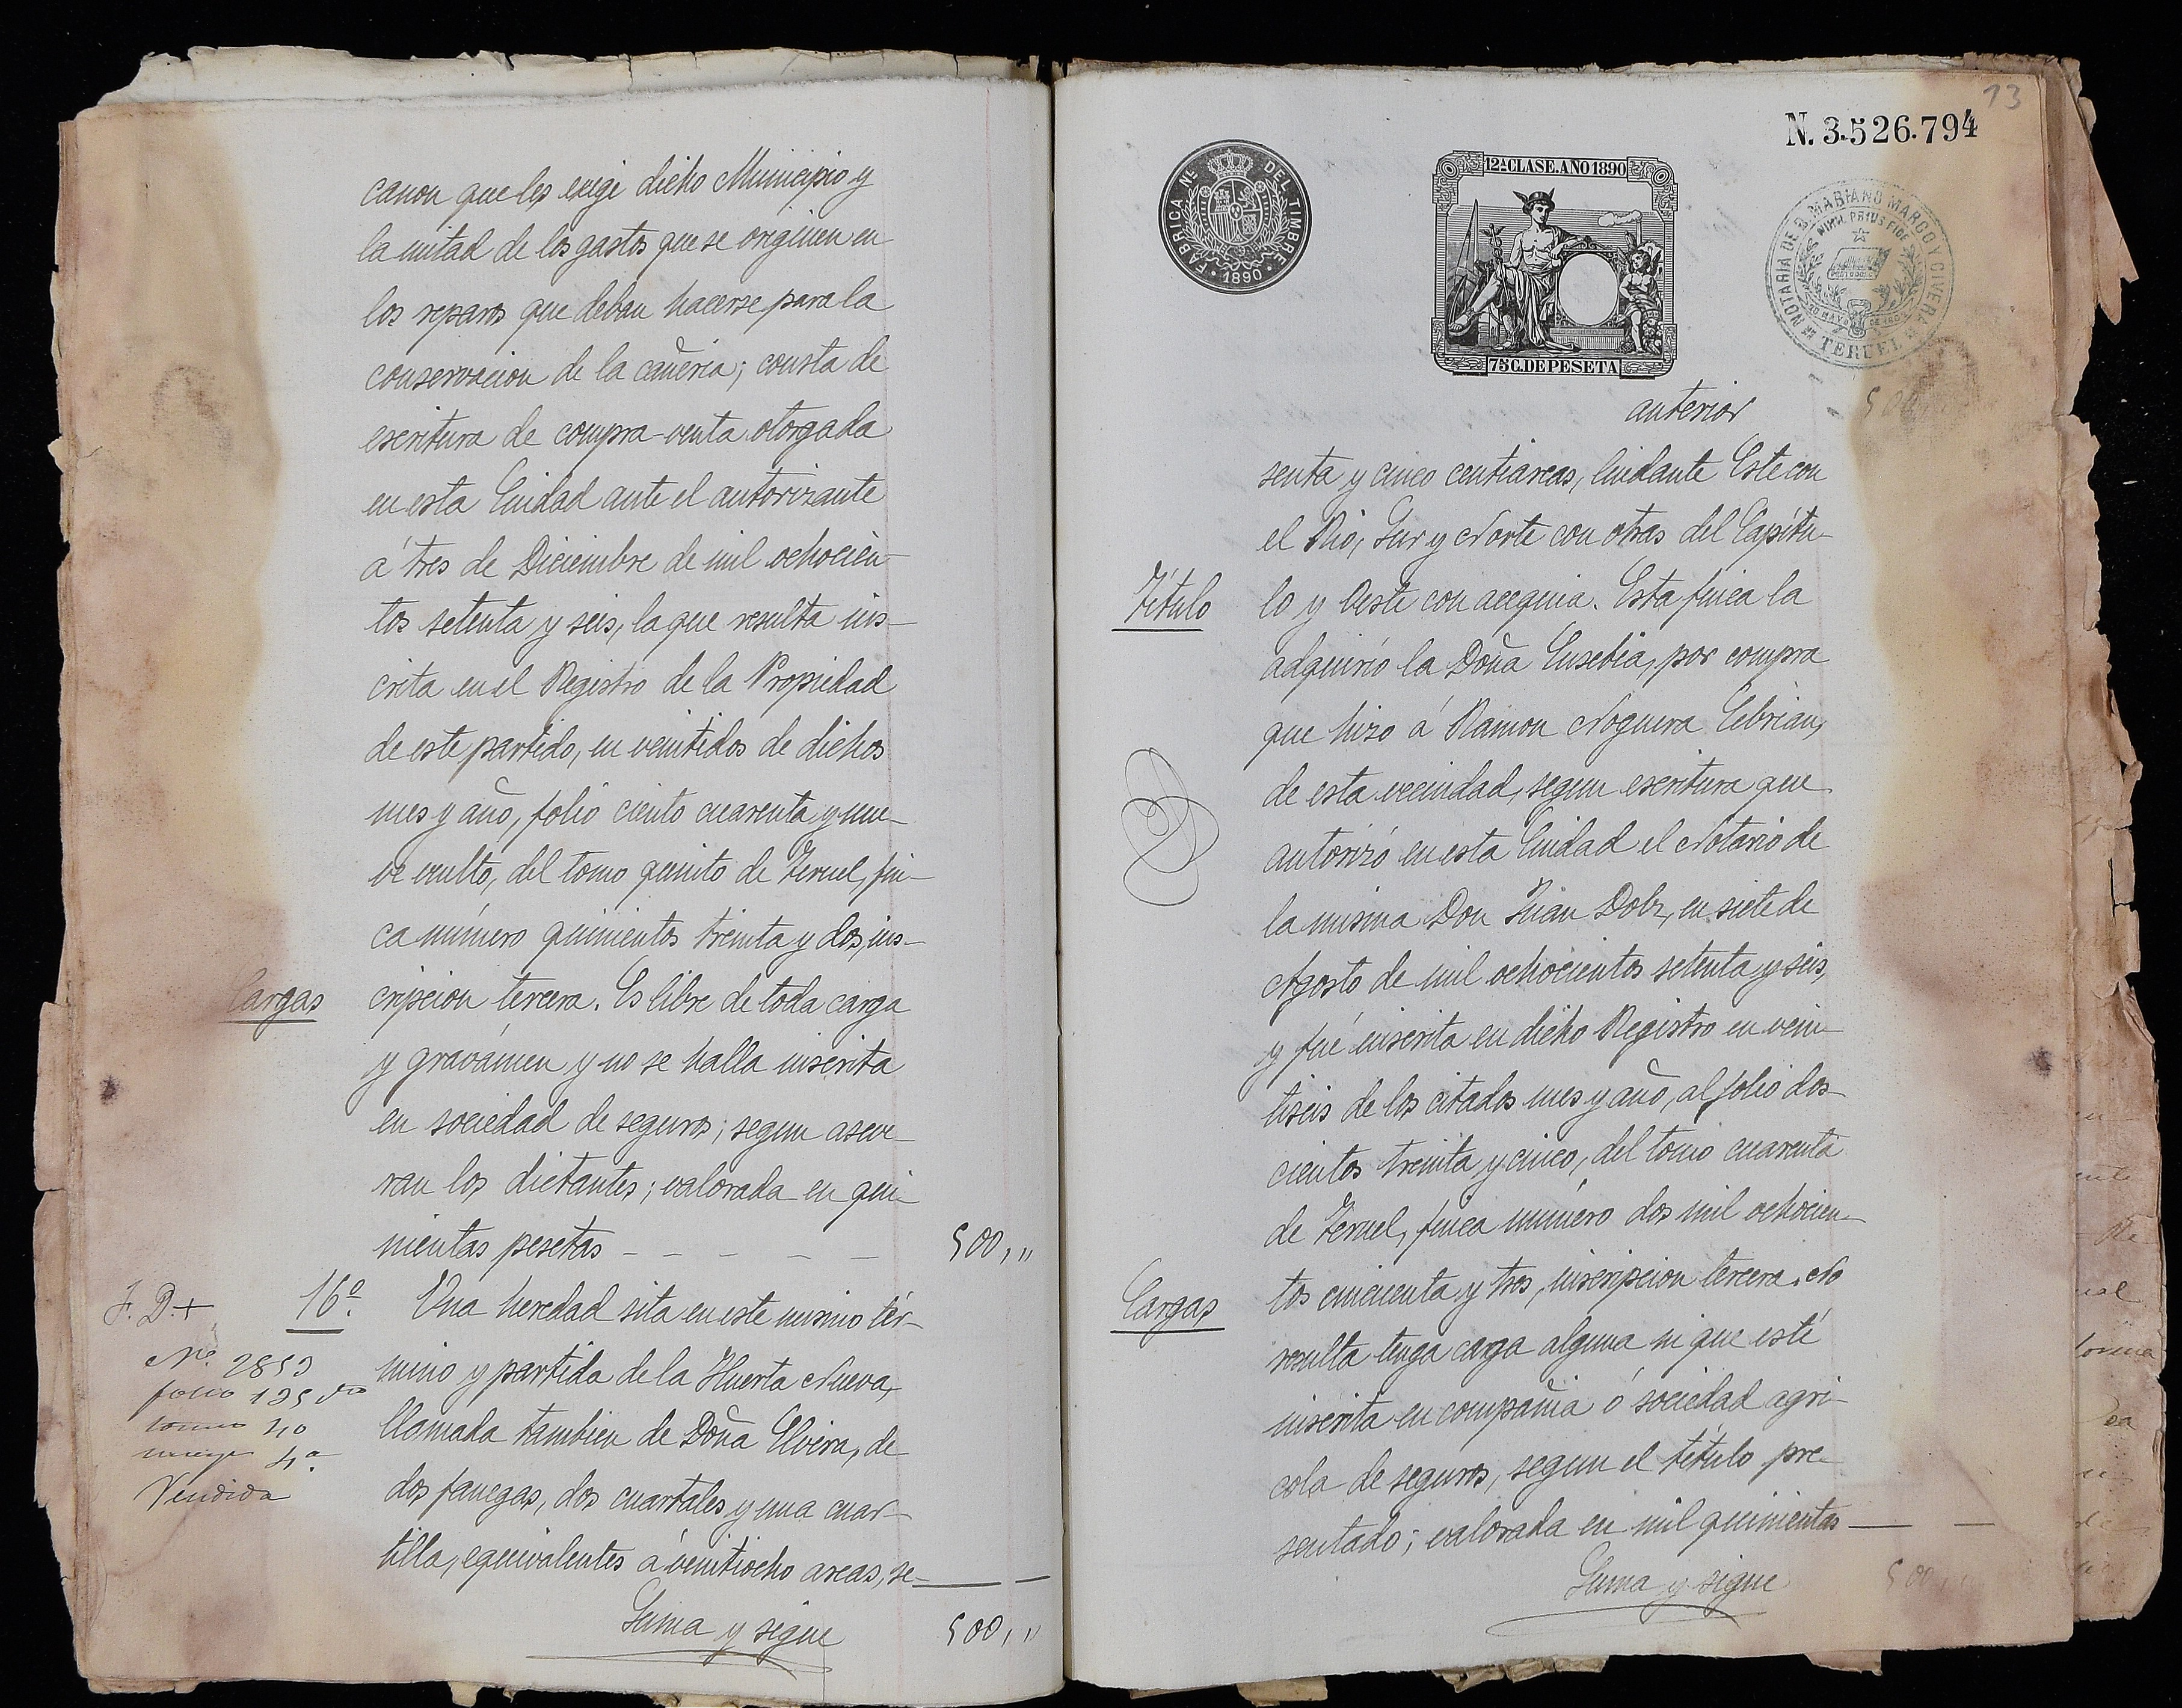 canon que les exige dicho Municipio y
la mitad de los gastos que se originen en
los reparos que deban hacerse para la
conservacion de la cañeria; consta de
escritura de compra-venta otorgada
en esta Ciudad ante el autorizante
á tres de Diciembre de mil ochocien-
tos setenta y seis, la que resulta ins-
crita en el Registro de la Propiedad
de este partido, en veintidos de dichos
mes y año, folio ciento cuarenta y nue-
ve vuelto, del tomo quinto de Teruel, fin-
ca número quinientos treinta y dos, ins-
Cargas cripcion tercera. Es libre de toda carga
y gravámen y no se halla inscrita
en sociedad de seguros; segun aseve-
ran los dictantes; valorada en qui-
nientas pesetas - - - - - 500,,,
F. D.+ 16º. Una heredad sita en este mismo tér-
Nº. 2853
mino y partida de la Huerta Nueva,
folio 135 vto
llamada tambien de Doña Elvira, de
tomo 40
4ª
dos fanegas, dos cuartales y una cuar-
Vendida
tilla, equivalentes á veintiocho areas, se-
Suma y sigue 500,,,
13
N. 3.526.794
FABRICA Nˡ. DEL TIMBRE
1890
12ª CLASE. AÑO 1890
75 C. DE PESETA
NOTARIA DE D. MARIANO MARCO Y CIVERA
NIHIL PRIUS FIDE
TERUEL
anterior 500
senta y cinco centiareas, lindante Este con
el Rio, Sur y Norte con otras del Capítu-
Título lo y Oeste con acequia. Esta finca la
adquirió la Doña Eusebia, por compra
que hizo á Ramon Noguera Cebrian,
de esta vecindad, segun escritura que
autorizó en esta Ciudad el Notario de
la misma Don Juan Dolz, en siete de
Agosto de mil ochocientos setenta y seis,
y fué inscrita en dicho Registro en vein-
tiseis de los citados mes y año, al folio dos-
cientos treinta y cinco, del tomo cuarenta
de Teruel, finca número dos mil ochocien-
Cargas tos cincuenta y tres, inscripcion tercera. No
resulta tenga carga alguna ni que esté
inscrita en compañia ó sociedad agri-
cola de seguros, segun el título pre-
sentado; valorada en mil quinientas
Suma y sigue 500,,,